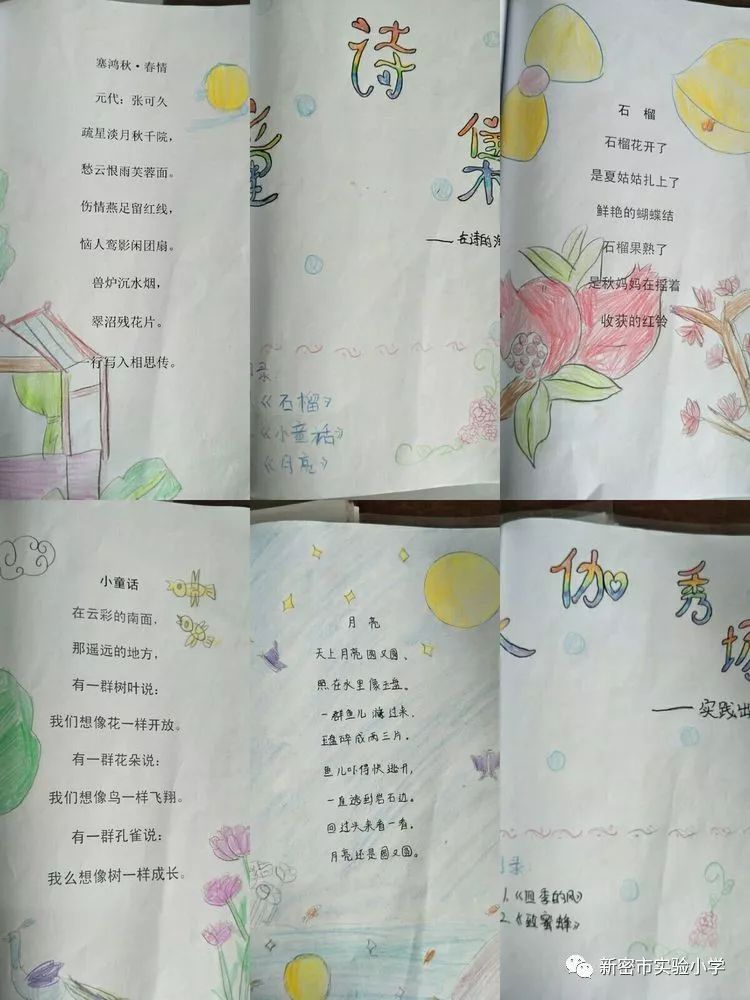 塞鸿秋·春情
元代：张可久
疏星淡月秋千院，
愁云恨雨芙蓉面。
伤情燕足留红线，
恼人鸾影闲团扇。
兽炉沉水烟，
翠沼残花片。
一行写入相思传。
诗
童
集
——在诗的
录:
《石榴》
《小童话》
《月亮》
石 榴
石榴花开了
是夏姑姑扎上了
鲜艳的蝴蝶结
石榴果熟了
是秋妈妈在摇着
收获的红铃
小童话
在云彩的南面，
那遥远的地方，
有一群树叶说：
我们想像花一样开放。
有一群花朵说：
我们想像鸟一样飞翔。
有一群孔雀说：
我么想像树一样成长。
月亮
天上月亮圆又圆、
照在水里像玉盘。
一群鱼儿游过来，
玉盘碎成两三片。
鱼儿吓得快逃开，
一直逃到岩石边。
回过头来看一看，
月亮还是圆又圆。
伽 秀
场
——实践出
录:
1.《四季的风》
2.《致蜜蜂》
新密市实验小学